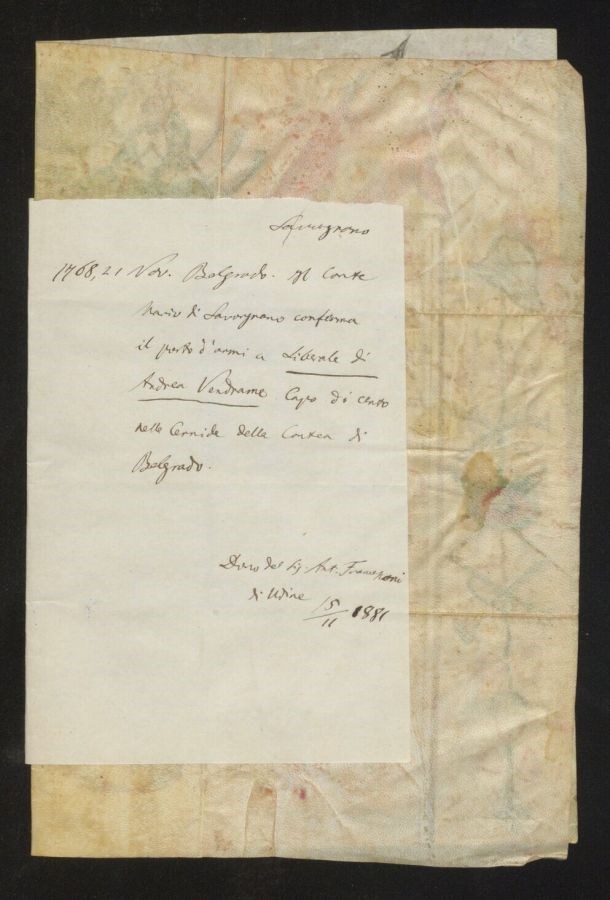 Savorgnano
1768, 21 Nov. Belgrado. Il Conte
Mario di Savorgnano conferma
il porto d'armi a Liberale di
Andrea Vendrame Capo di cento
nelle Cernide della Contea di
Belgrado.
Dono del Sig. Ant.
di Udine 15/11 1881